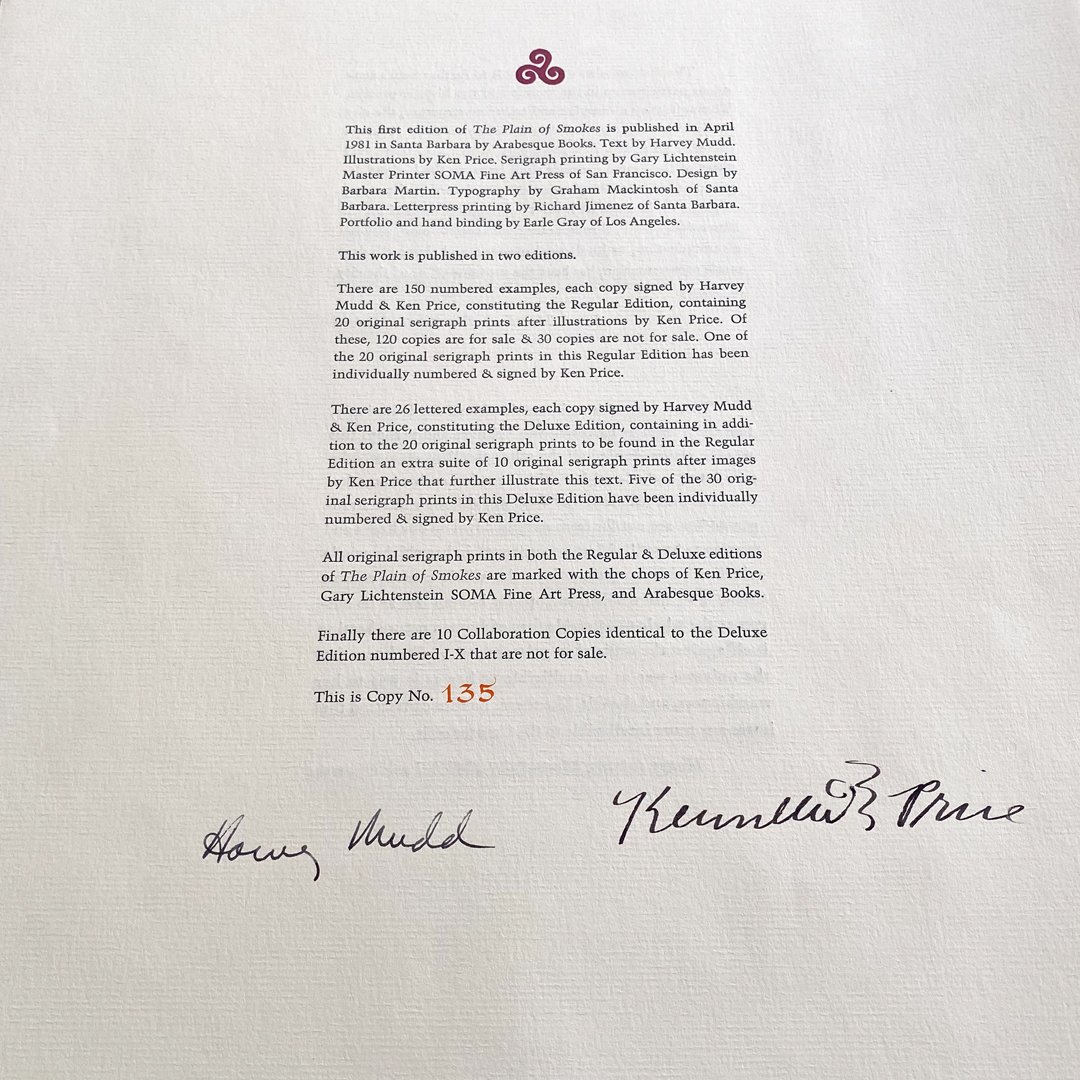 This first edition of The Plain of Smokes is published in April
1981 in Santa Barbara by Arabesque Books. Text by Harvey Mudd.
Illustrations by Ken Price. Serigraph printing by Gary Lichtenstein
Master Printer SOMA Fine Art Press of San Francisco. Design by
Barbara Martin. Typography by Graham Mackintosh of Santa
Barbara. Letterpress printing by Richard Jimenez of Santa Barbara.
Portfolio and hand binding by Earle Gray of Los Angeles.
This work is published in two editions.
There are 150 numbered examples, each copy signed by Harvey
Mudd & Ken Price, constituting the Regular Edition, containing
20 original serigraph prints after illustrations by Ken Price. Of
these, 120 copies are for sale & 30 copies are not for sale. One of
the 20 original serigraph prints in this Regular Edition has been
individually numbered & signed by Ken Price.
There are 26 lettered examples, each copy signed by Harvey Mudd
& Ken Price, constituting the Deluxe Edition, containing in addi-
tion to the 20 original serigraph prints to be found in the Regular
Edition an extra suite of 10 original serigraph prints after images
by Ken Price that further illustrate this text. Five of the 30 orig-
inal serigraph prints in this Deluxe Edition have been individually
numbered & signed by Ken Price.
All original serigraph prints in both the Regular & Deluxe editions
of The Plain of Smokes are marked with the chops of Ken Price,
Gary Lichtenstein SOMA Fine Art Press, and Arabesque Books.
Finally there are 10 Collaboration Copies identical to the Deluxe
Edition numbered I-X that are not for sale.
This is Copy No. 135
Harvey Mudd
Kenneth Price